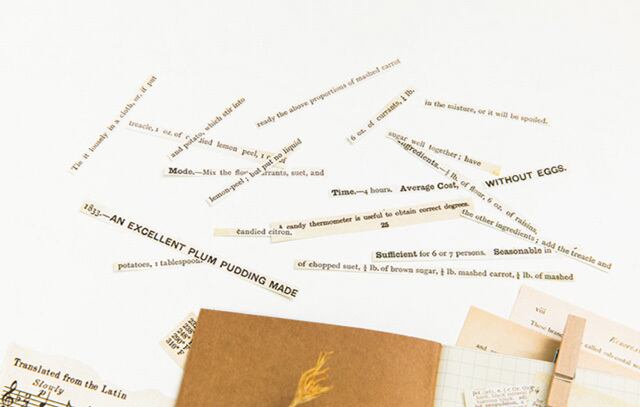 Tie it loosely in a cloth, or, if put
treacle, 1 oz. of
died lemon peel, 1
and potato, which stir into
ready the above proportions of mashed carrot
6 oz. of currants, ½ lb.
in the mixture, or it will be spoiled.
sugar well together; have
Mode.—Mix the flo
rrants, suet, and
lemon-peel; but put no liquid
ngredients.—½ lb. of flour, 6 oz. of raisins,
Time.—4 hours. Average Cost,
WITHOUT EGGS.
1833.—AN EXCELLENT PLUM PUDDING MADE
candied citron.
A candy thermometer is useful to obtain correct degrees.
25
the other ingredients; add the treacle and
Sufficient for 6 or 7 persons. Seasonable in
potatoes, 1 tablespoon
of chopped suet, ¼ lb. of brown sugar, ¼ lb. mashed carrot, ¼ lb. of mashed
248°
290°
310° F
viii
These
and
called
Translated from the Latin
Slowly
p